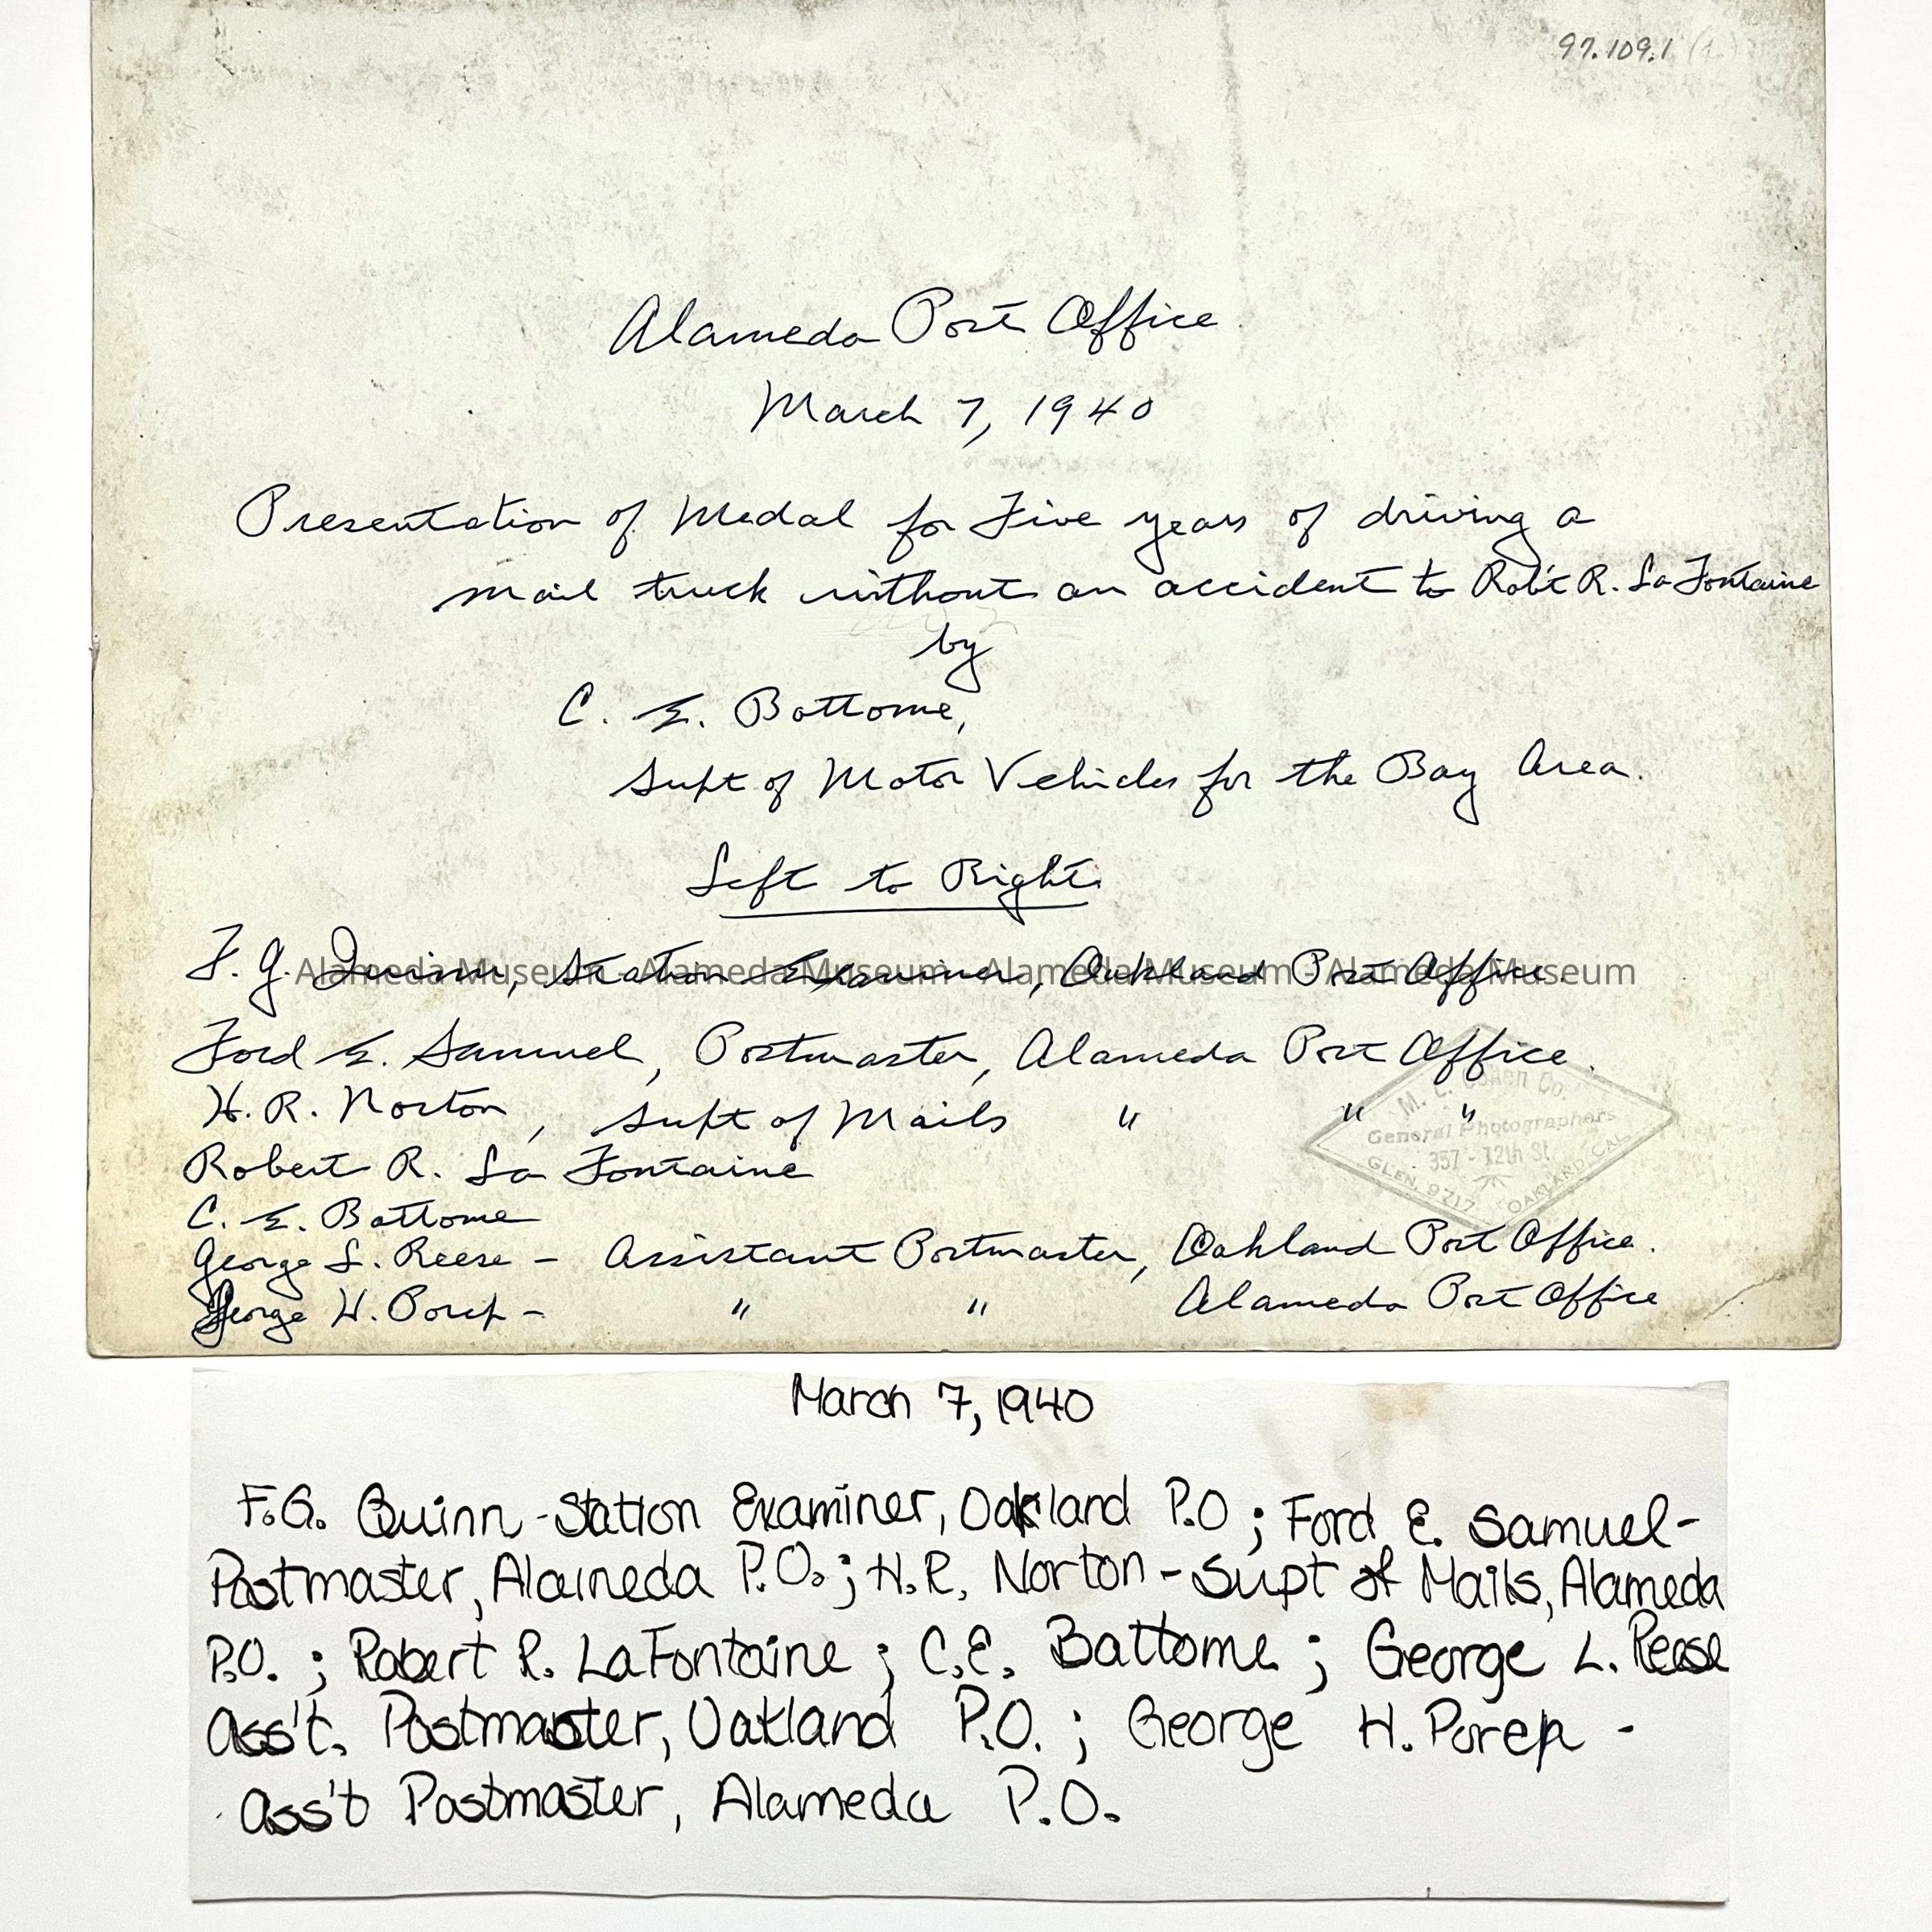 97.109.1
Alameda Post Office
March 7, 1940
Presentation of Medal for Five years of driving a
mail truck without an accident to Rob't R. La Fontaine
by
C. E. Battome,
Supt of Motor Vehicles for the Bay Area.
Left to Right
F. G. Quinn, Station Examiner, Oakland Post Office.
Alameda Museum - Alameda Museum - Alameda Museum - Alameda Museum
Ford E. Samuel, Postmaster, Alameda Post Office.
H. R. Norton, Supt of Mails " " "
Robert R. La Fontaine
C. E. Battome
George L. Reese - Assistant Postmaster, Oakland Post Office.
George H. Porep - " " Alameda Post Office
Co.
General Photographers
357 - 12th St.
GLEN. 9717 OAKLAND, CAL.
March 7, 1940
F.G. Quinn - Station Examiner, Oakland P.O ; Ford E. Samuel -
Postmaster, Alameda P.O. ; H.R. Norton - Supt of Mails, Alameda
P.O. ; Robert R. LaFontaine ; C.E. Battome ; George L. Reese
Ass't. Postmaster, Oakland P.O. ; George H. Porep -
Ass't Postmaster, Alameda P.O.